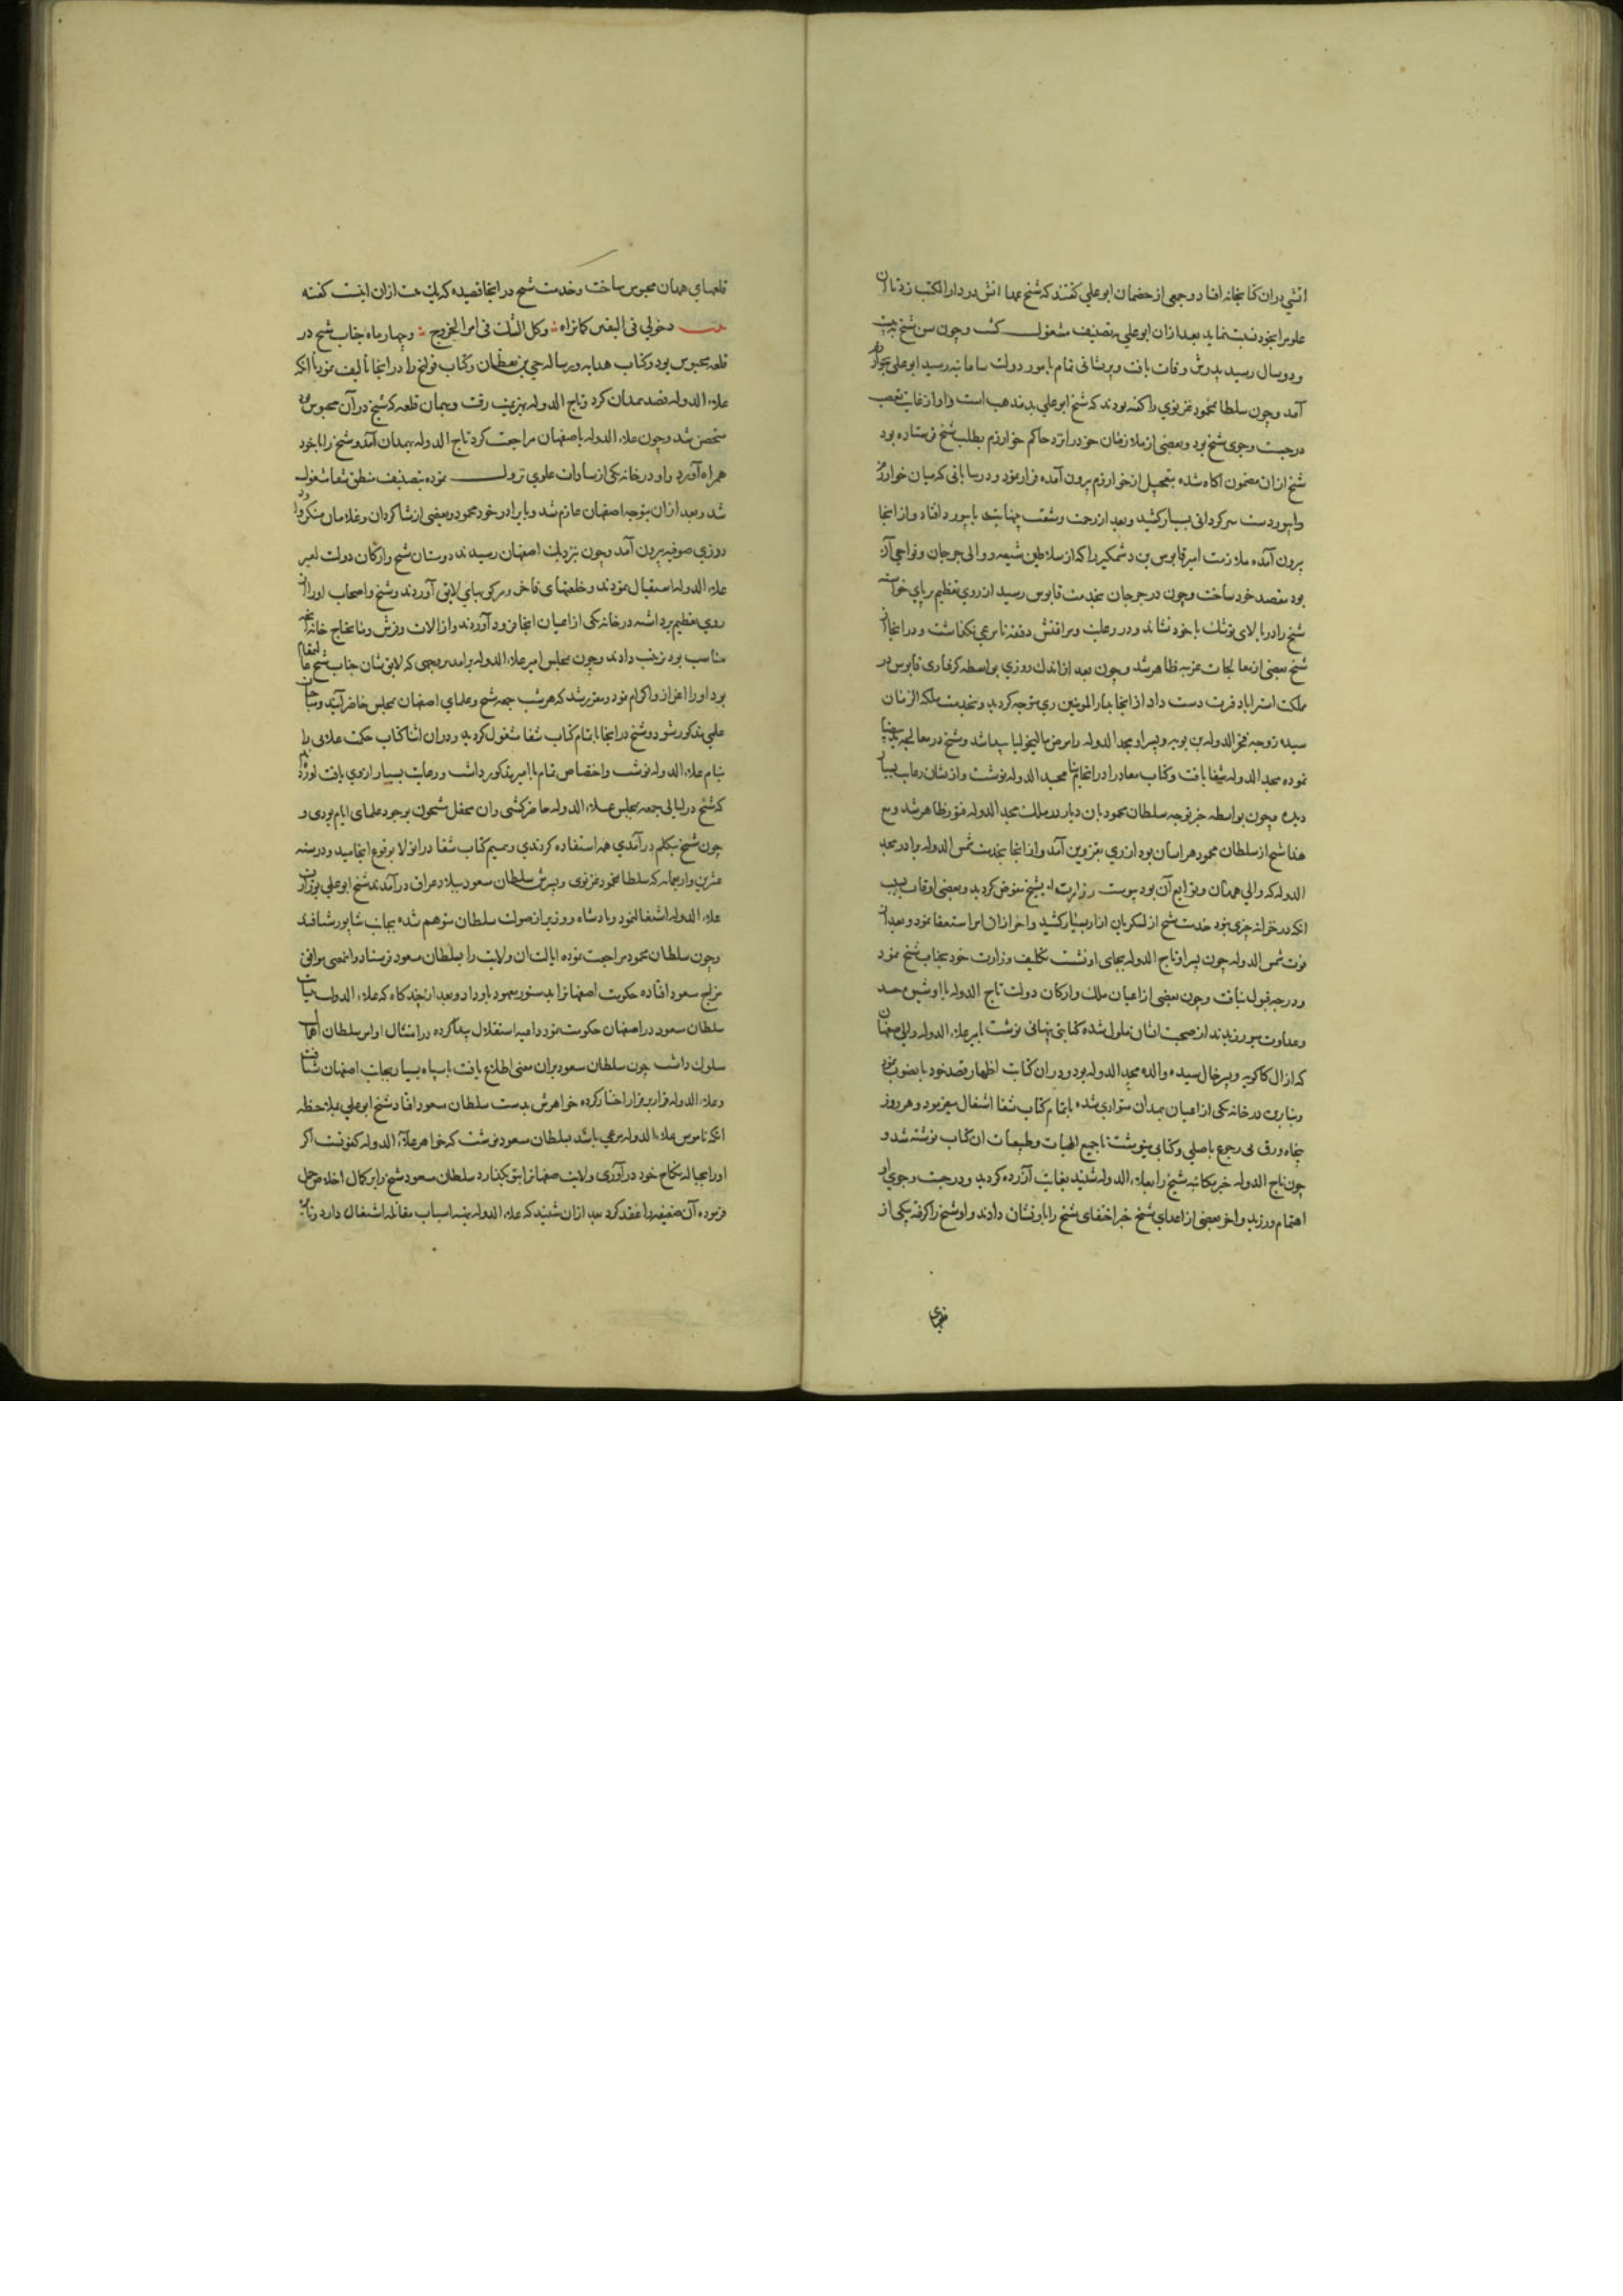 آتشی دران کتابخانه افتاد و جمعی از خصمان ابوعلی گفتند که شیخ عمدا آتش در دار الکتب زد تا آن
علوم را بخود نسبت نماید بعد ازان ابوعلی بتصنیف مشغول کشت و چون سن شیخ به بیست
و دو سال رسید پدرش وفات یافت و پریشانی تمام بامور دولت سامانیه رسید ابوعلی بخوارزم
آمد و چون سلطان محمود غزنوی را گفته بودند که شیخ ابوعلی بد مذهب است و او از غایت تعصب
در جست و جوی شیخ بود و بعضی از ملازمان خود را نزد حاکم خوارزم بطلب شیخ فرستاده بود
شیخ ازان مضمون اگاه شده بتعجیل از خوارزم بیرون آمده فرار نمود و در بیابانی که میان خوارزم
و ابیوردست سرگردانی بسیار کشید و بعد از زحمت و مشقت بینهایت بابیورد افتاد و از انجا
بیرون آمده ملازمت امیر قابوس بن وشمکیر را که از سلاطین شیعه و والی جرجان و نواحی آن
بود مقصد خود ساخت و چون در جرجان بخدمت قابوس رسید از روی تعظیم برپای خواسته
شیخ را در بالای توشک با خود نشاند و در رعایت و مراقبتش دقیقه نامرعی نگذاشت و در انجا از
شیخ بعضی از معالجات غریبه ظاهر شد و چون بعد از اندک روزی بواسطه گرفتاری قابوس در
ملکت استراباد فترت دست داد از انجا بدار المومنین ری متوجه گردید و بخدمت ملکه الزمان
سیده زوجه فخر الدوله بن بویه و پسر او مجد الدوله را مرض مالیخولیا پیدا شد و شیخ در معالجه ید بیضا
نموده مجد الدوله شفا یافت و کتاب معاد را در انجا بنام مجد الدوله نوشت و ازیشان رعایت بسیار
دیده و چون بواسطه خبر توجه سلطان محمود بان دیار در ملک مجد الدوله فتور ظاهر شد و مع
هذا شیخ از سلطان محمود هراسان بود از ری بقزوین آمد و از انجا بخدمت شمس الدوله برادر مجد
الدوله که والی همدان و توابع آن بود پیوست وزارت او بشیخ مفوض گردید و بعضی اوقات بسبب
انکه در خزانه چیزی نبود خدمت شیخ از لشکریان ازار بسیار کشید و اخر ازان امر استعفا نمود و بعد از
فوت شمس الدوله چون پسر او تاج الدوله بجای او نشست تکلیف وزارت خود بجناب شیخ نمود
و درجه قبول نیافت و چون بعضی از اعیان ملک و ارکان دولت تاج الدوله با او شیوه حسد
و عداوت میورزیدند از صحبت ایشان ملول شده کتابتی پنهانی نوشت بامیر علاء الدوله والی اصفهان
که از ال کاکویه و پسر خال سیده والده مجد الدوله بود و دران کتابت اظهار قصد خود بانصوب نمود
و بنابرین در خانه یکی از اعیان همدان متواری شده باتمام کتاب شفا اشتغال مینمود و هر روز
پنجاه ورق بی رجوع باصلی و کتابی مینوشت تا جمیع الهیات و طبیعیات ان کتاب نوشته شد و
چون تاج الدوله خبر مکاتبه شیخ را بعلاء الدوله شنید بغایت آزرده گردید و در جست و جوی او
اهتمام ورزید و اخر بعضی از اعدای شیخ خبر اختفای شیخ را باو نشان دادند و او شیخ را گرفته بیکی از
قلعهای همدان محبوس ساخت و خدمت شیخ در انجا قصیده که یک بیت ازان اینست گفته
بیت دخولی فی الیقین کما تراه وکل الشک فی امر الخروج و چهار ماه جناب شیخ در
قلعه محبوس بود و کتاب هدایه و رساله حی بن یقظان و کتاب قولنج را در انجا تالیف نمود تا انکه
علاء الدوله قصد همدان کرد و تاج الدوله بهزیمت رفت و بهمان قلعه که شیخ در آن محبوس بود
متحصن شد و چون علاء الدوله باصفهان مراجعت کرد تاج الدوله بهمدان آمد و شیخ را با خود
همراه آورد و او در خانه یکی از سادات علوی نزول نموده بتصنیف منطق شفا مشغول
شد و بعد ازان متوجه اصفهان عازم شد و با برادر خود محمود و بعضی از شاگردان و غلامان منکروار
در زی صوفیه بیرون آمد و چون نزدیک اصفهان رسیدند دوستان شیخ و ارکان دولت امیر
علاء الدوله استقبال نمودند و خلعتهای فاخر و مرکبهای لایق آوردند و شیخ و اصحاب او را از
روی تعظیم برداشته در خانه یکی از اعیان انجا فرود آوردند و از الات و فرش و مایحتاج خانه انچه
مناسب بود ترتیب دادند و چون بمجلس امیر علاء الدوله برامد بر وجهی که لایق شان جناب شیخ عالیمقام
بود او را اعزاز و اکرام نمود و مقرر شد که هر شب جمعه شیخ و علمای اصفهان بمجلس حاضر آیند و مباحث
علمی مذکور شود و شیخ در انجا باتمام کتاب شفا مشغول گردید و دران اثنا کتاب حکمت علائی را
بنام علاء الدوله نوشت و اختصاص تمام با امیر مذکور داشت و رعایت بسیار ازوی یافت
که شیخ در لیالی جمعه بمجلس علاء الدوله حاضر گشتی و ان محفل مشحون بوجود علمای ایام بودی و
چون شیخ بتکلم درآمدی همه استفاده کردندی و تتمیم کتاب شفا در انولا بوقوع انجامید و در سنه
عشرین و اربعمایه که سلطان محمود غزنوی و پسرش سلطان مسعود ببلاد عراق درآمدند شیخ ابوعلی بوزارت
علاء الدوله اشتغال نمود و پادشاه و وزیر از صولت سلطان متوهم شده بجانب شاپور شتافتند
و چون سلطان محمود مراجعت نموده ایالت ان ولایت را بسلطان مسعود فرستاد و انمعنی موافق
مزاج مسعود افتاده حکومت اصفهان را بدستور معهود باو داد و بعد از چند گاه که علاء الدوله بنیابت
سلطان مسعود در اصفهان حکومت نمود داعیه استقلال پیدا کرده در امتثال اوامر سلطان اهمال
سلوک داشت چون سلطان مسعود بران معنی اطلاع یافت با سپاه بسیار بجانب اصفهان شتافت
و علاء الدوله فرار بر قرار اختیار کرده خواهرش بدست سلطان مسعود افتاد شیخ ابوعلی بملاحظه
انکه ناموس علاء الدوله مرعی باشد بسلطان مسعود نوشت که خواهر علاء الدوله کفو تست اگر
او را بحباله نکاح خود درآوری ولایت اصفهان را بتو بگذارد سلطان مسعود شیخ را بر کمال اخلاص حمل
فرموده آن ضعیفه را عقد کرد بعد ازان شنید که علاء الدوله بتهیه اسباب مقاتله اشتغال دارد